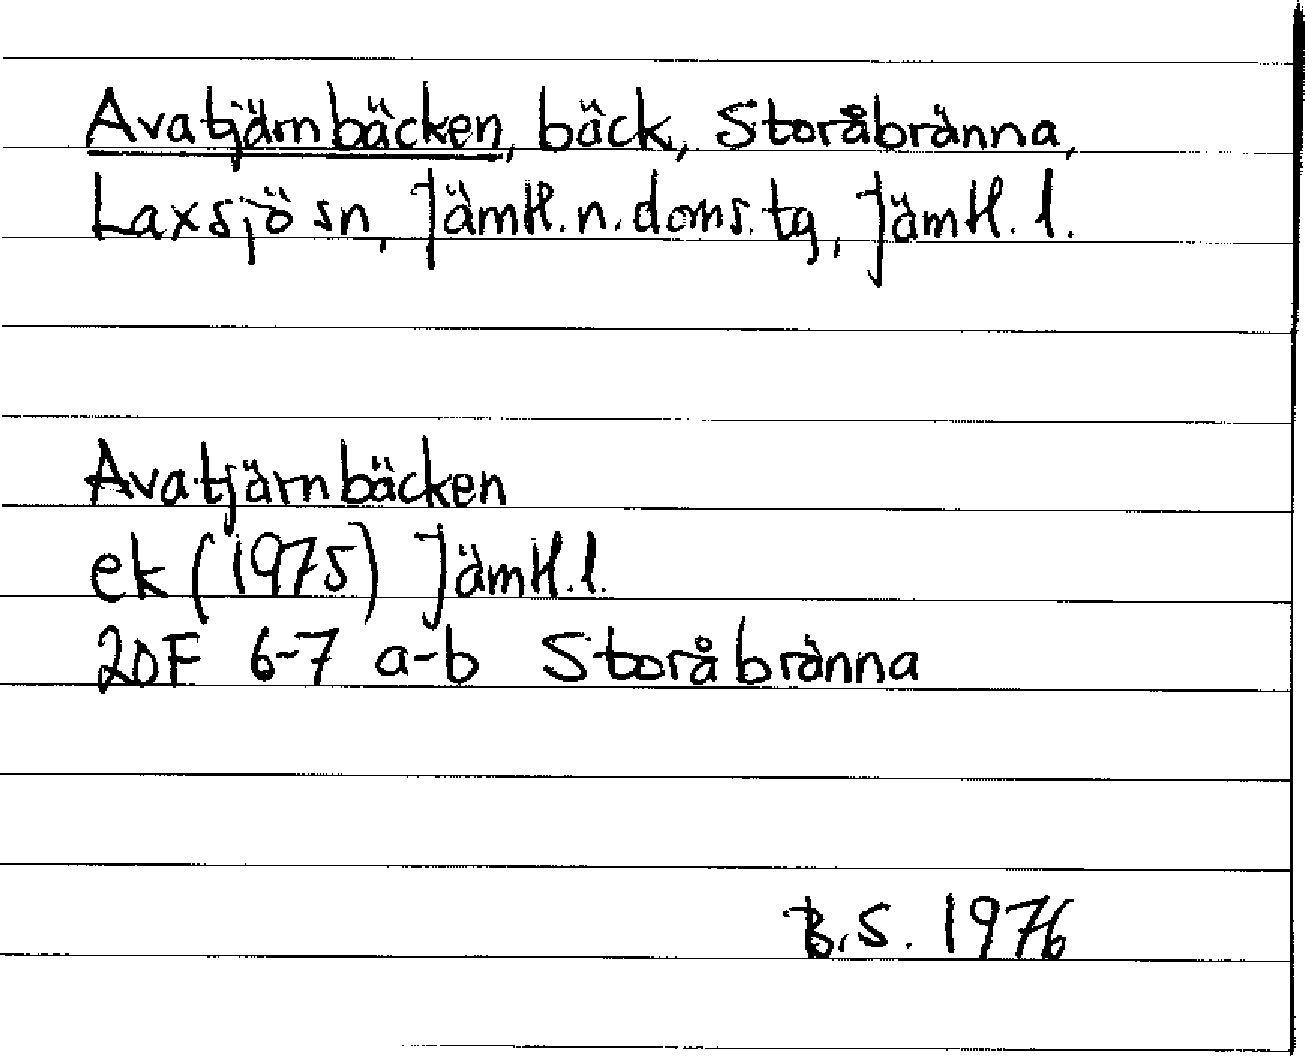 Avatjärnbäcken, bäck, Storåbränna,
Laxsjö sn, Jämtl. n. doms. tg, Jämtl. l.
Avatjärnbäcken
ek (1975) Jämtl. l.
20F 6-7 a-b Storåbränna
B.S. 1976